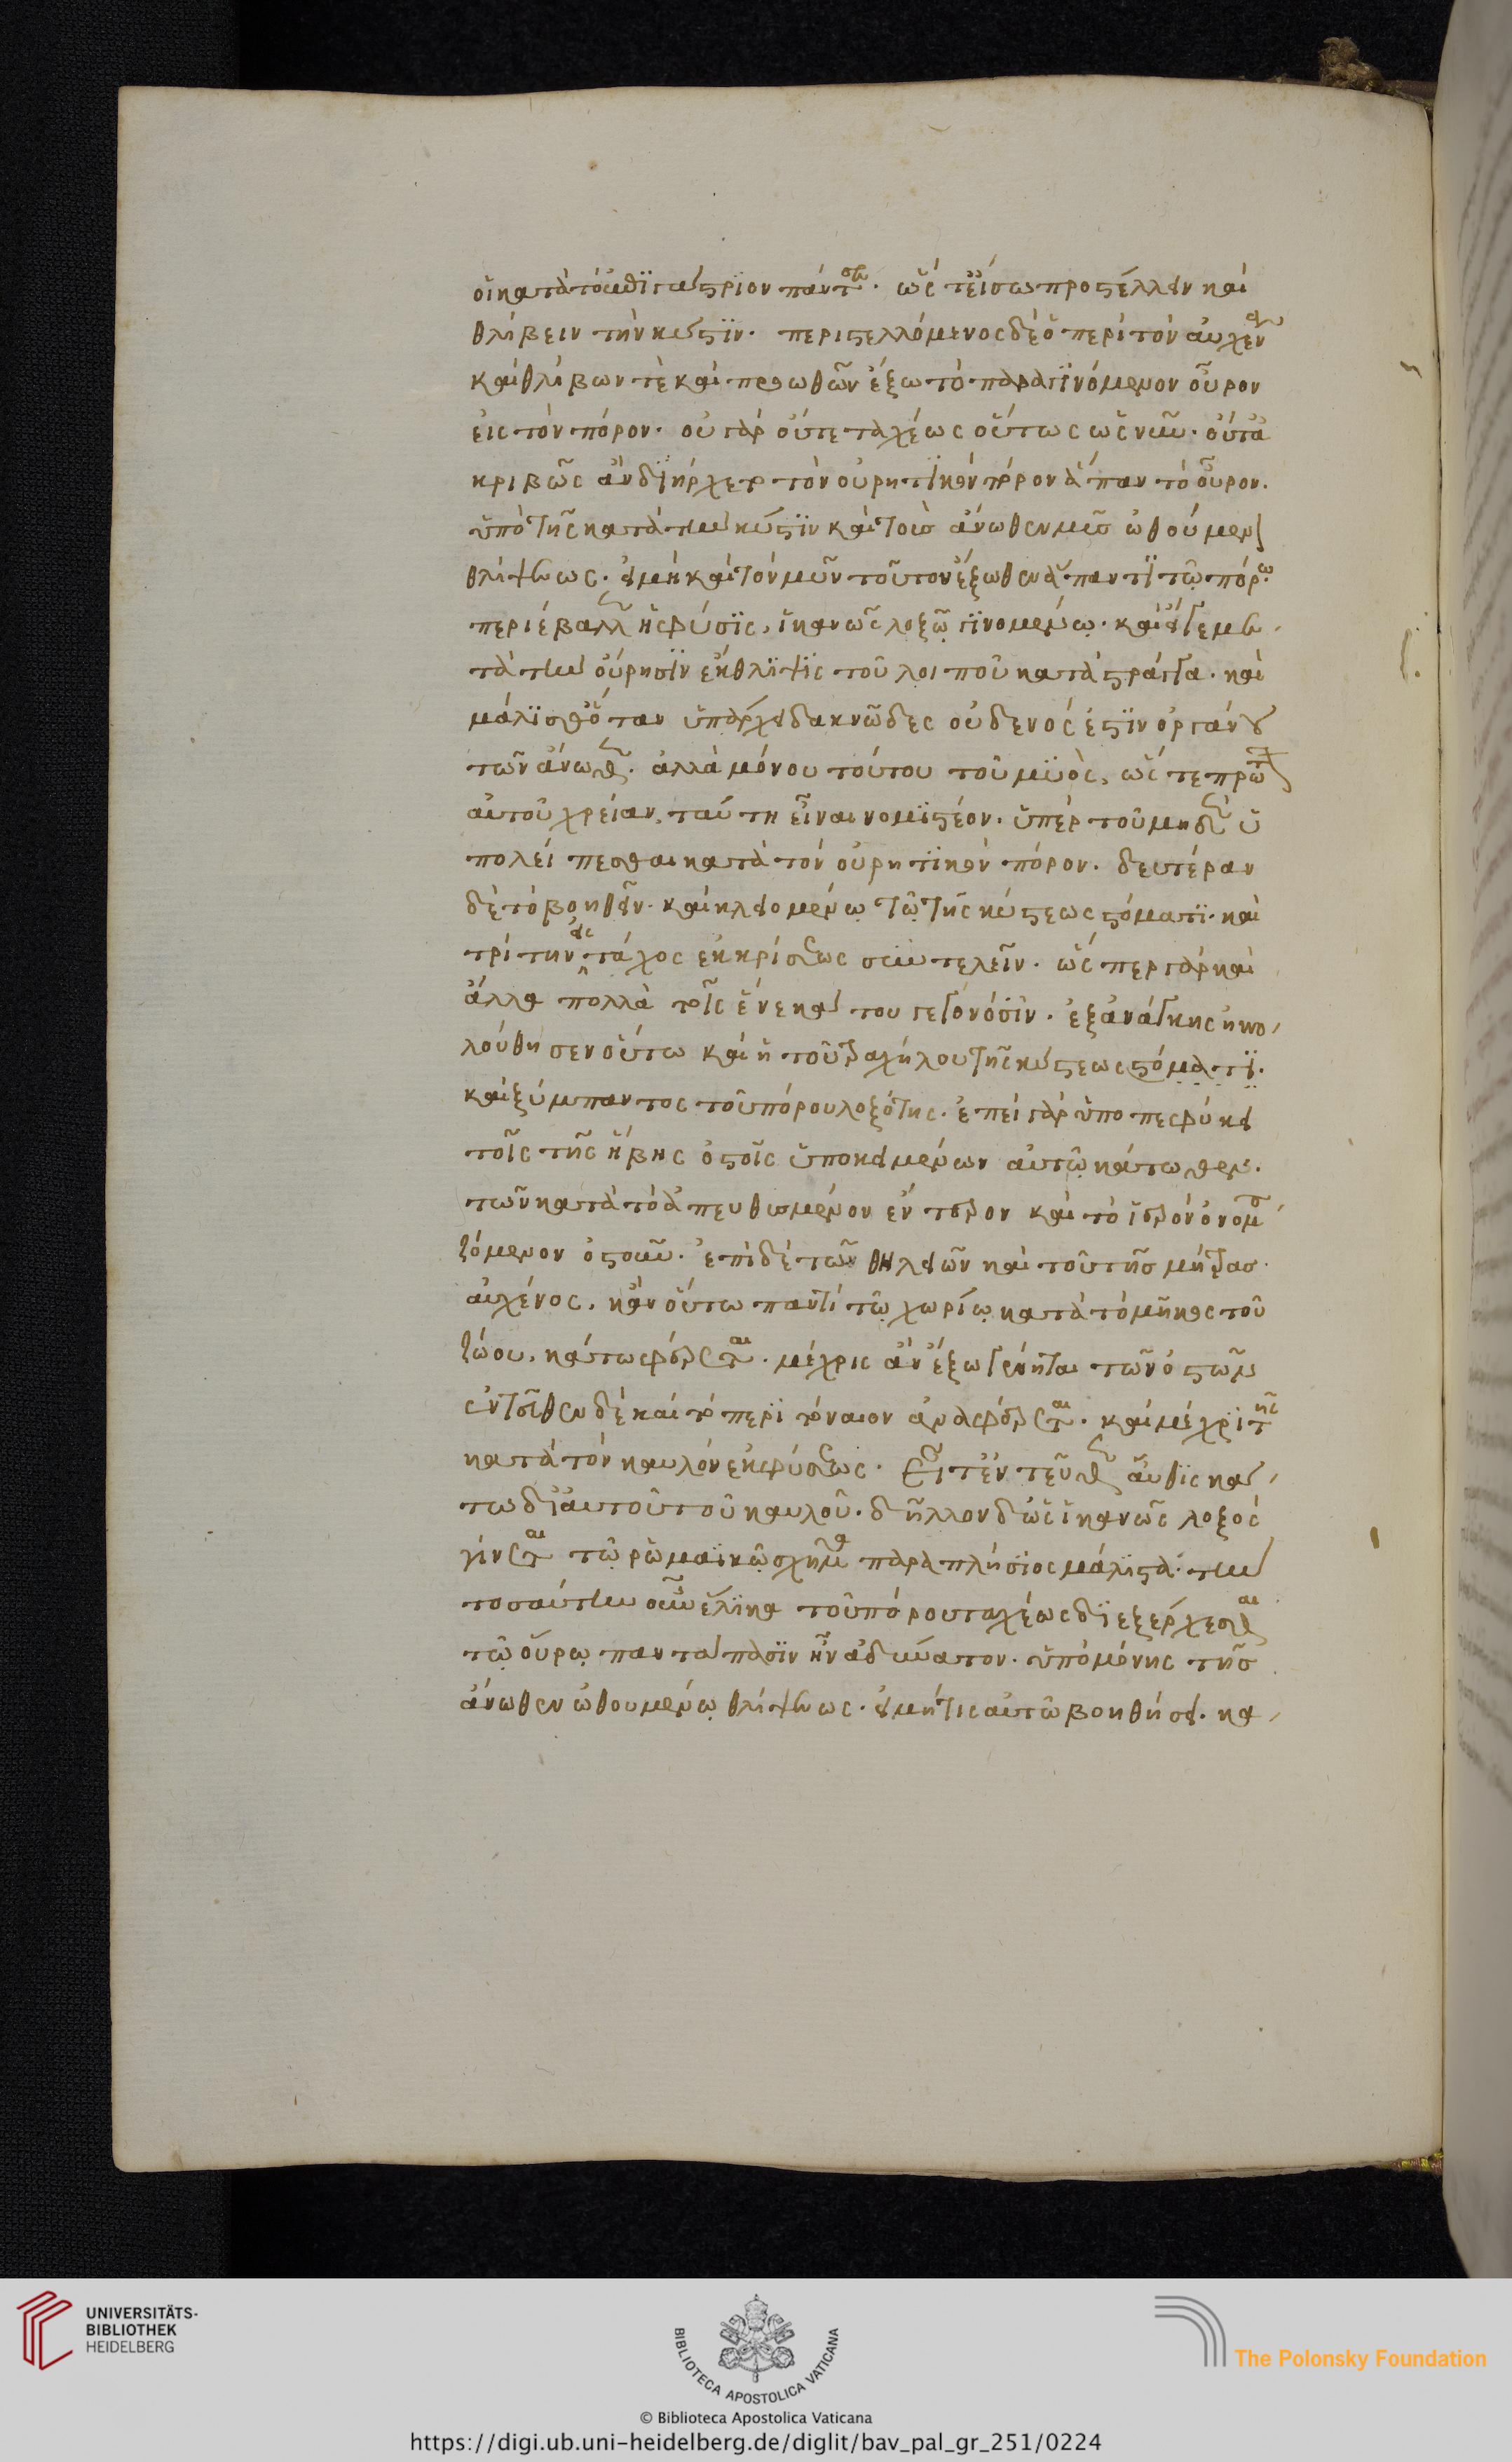 οἱ κατὰ τὸ ἐπιγάστριον πάντες. ὥς τε εἴσω προστέλλειν καὶ
θλίβειν τὴν κύστιν. περιστελλόμενος δὲ ὁ περὶ τὸν αὐχένα
καὶ θλίβων τὲ καὶ προωθῶν ἔξω τὸ παραγινόμενον οὖρον
εἰς τὸν πόρον. οὐ γὰρ οὔτε ταχέως οὕτως ὡς νῦν. οὔτ' ἀ
κριβῶς ἂν διήρχετο τὸν οὐρητικὸν πόρον ἅπαν τὸ οὖρον.
ὑπὸ τῆς κατὰ τὴν κύστιν καὶ τοὺς ἄνωθεν μῦς ὠθούμενον
θλίψεως. εἰ μὴ καὶ τὸν μῦν τοῦτον ἔξωθεν ἅπαντι τῷ πόρῳ
περιέβαλλεν ἡ φύσις, ἱκανῶς λοξῷ γινομένῳ. καὶ
τὰ τὴν οὔρησιν ἔκθλιψις τοῦ λοιποῦ κατὰ στράγγα. καὶ
μάλισθ' ὅταν ὑπάρχει δακνῶδες οὐδενός ἐστιν ὀργάνου
τῶν ἄνωθεν. ἀλλὰ μόνου τούτου τοῦ μυὸς, ὥς τε πρώτην
αὐτοῦ χρείαν, ταύτη εἶναι νομιστέον. ὑπὲρ τοῦ μηδὲν ὑ
πολείπεσθαι κατὰ τὸν οὐρητικὸν πόρον. δευτέραν
δὲ τὸ βοηθεῖν. καὶ κλειομένῳ τῷ τῆς κύστεως στόματι. καὶ
τρίτην εἰς τάχος ἐκκρίσεως συντελεῖν. ὥς περ γὰρ καὶ
ἄλλα πολλὰ τοῖς ἕνεκά του γεγονόσιν. ἐξ ἀνάγκης ἠκο
λούθησεν οὕτω καὶ ἡ τοῦ τραχήλου τῆς κύστεως στόματι.
καὶ ξύμπαντος τοῦ πόρου λοξότης. ἐπεὶ γὰρ ὑποπεφύκει
τοῖς τῆς ἥβης ὀστοῖς ὑποκειμένων αὐτῷ κάτωθεν.
τῶν κατὰ τὸ ἀπευθυσμένον ἔντερον καὶ τὸ ἱερὸν ὀνομα
ζόμενον ὀστοῦν. ἐπὶ δὲ τῶν θηλειῶν καὶ τοῦ τῆς μήτρας
αὐχένος, κἂν οὕτω παντὶ τῷ χωρίῳ κατὰ τὸ μῆκος τοῦ
ζώου, κάτω φέρεται. μέχρις ἂν ἔξω γένηται τῶν ὀστῶν
ἐντεῦθεν δὲ καὶ τὸ περίναιον ἀναφέρεται. καὶ μέχρι τῆς
κατὰ τὸν καυλὸν ἐκφύσεως. εἶτ' ἐντεῦθεν αὖθις κά
τω δι' αὐτοῦ τοῦ καυλοῦ. δῆλλον δ' ὡς ἱκανῶς λοξός
γίνεται τῷ ῥωμαϊκῷ σχήματι παραπλήσιος μάλιστα. τὴν
τοσαύτην οὖν ἕλικα τοῦ πόρου ταχέως διεξέρχεσθαι
τῷ οὔρῳ παντάπασιν ἦν ἀδύνατον. ὑπὸ μόνης τῆς
ἄνωθεν ὠθουμένῳ θλίψεως. εἰ μή τις αὐτῷ βοηθήσει. κα
UNIVERSITÄTS-
BIBLIOTHEK
HEIDELBERG
BIBLIOTECA APOSTOLICA VATICANA
The Polonsky Foundation
© Biblioteca Apostolica Vaticana
https://digi.ub.uni-heidelberg.de/diglit/bav_pal_gr_251/0224